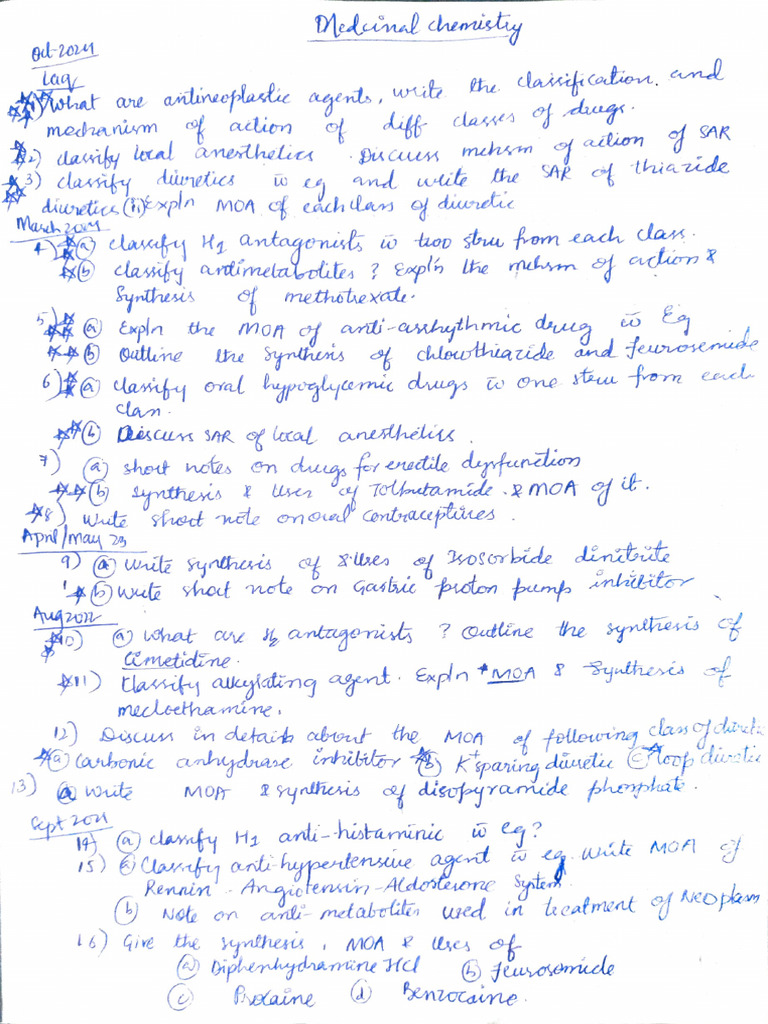 Medcinal chemistry
Oct-2024
Laq
1) What are antineoplastic agents, write the classification. and
mechanism of action of diff classes of drugs.
2) classify local anesthetics. Discuss mehsm of action of SAR
3) classify diuretics w̄ eg and write the SAR of thiazide
diuretics (ii) Expln MOA of each class of diuretic
March 2024
4) (a) classify H1 antagonists w̄ two stru from each class.
(b) classify antimetabolites ? Expl'n the mehsm of action &
Synthesis of methotrexate.
5) (a) Expln the MOA of anti-arrhythmic drug w̄ Eg
(b) Outline the synthesis of chlorothiazide and feurosemide
6) (a) classify oral hypoglycemic drugs w̄ one stru from each
clan.
(b) Discuss SAR of local anesthetics.
7) (a) short notes on drugs for erectile dysfunction
(b) Synthesis & Uses of Tolbutamide. & MOA of it.
8) Write short note on oral contraceptives.
April/May 23
9) (a) Write synthesis of & Uses of Isosorbide dinitrite
(b) Write short note on Gastric proton pump inhibitor
Aug 2022
10) (a) What are H2 antagonists ? Outline the synthesis of
Cimetidine.
11) Classify alkylating agent. Expln MOA & Synthesis of
mecloethamine.
12) Discuss in details about the MOA of following class of diuretic
(a) Carbonic anhydrase inhibitor (b) K+ sparing diuretic (c) loop diuretic
13) Write MOA & synthesis of disopyramide phosphate.
Sept 2021
14) (a) classify H1 anti-histaminic w̄ eg?
15) (a) Classify anti-hypertensive agent w̄ eg. Write MOA of
Rennin-Angiotensin-Aldosterone System
(b) Note on anti-metabolites used in treatment of Neoplasm
16) Give the synthesis, MOA & Uses of
(a) Diphenhydramine HCl (b) feurosomide
(c) Procaine (d) Benzocaine.